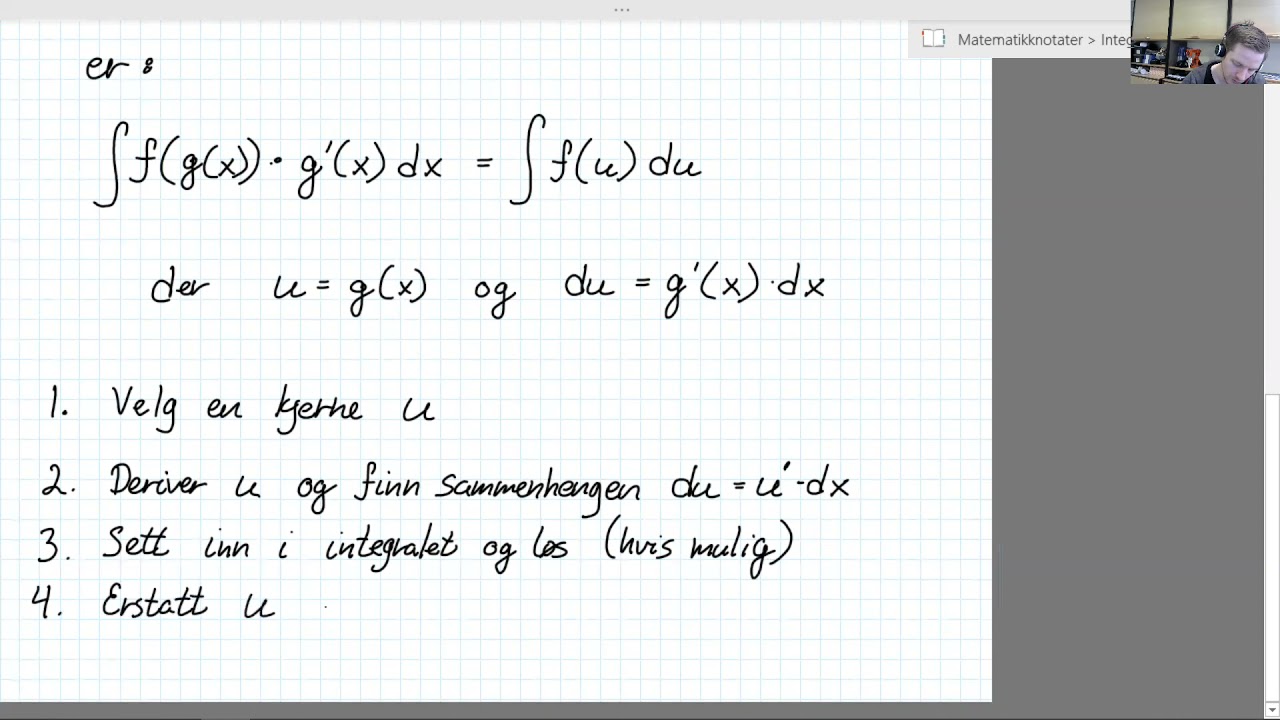 Matematikknotater > Integ
er :
∫f(g(x))· g'(x) dx = ∫f(u) du
der u = g(x) og du = g'(x)·dx
1. Velg en kjerne u
2. Deriver u og finn sammenhengen du = u'·dx
3. Sett inn i integralet og løs (hvis mulig)
4. Erstatt u